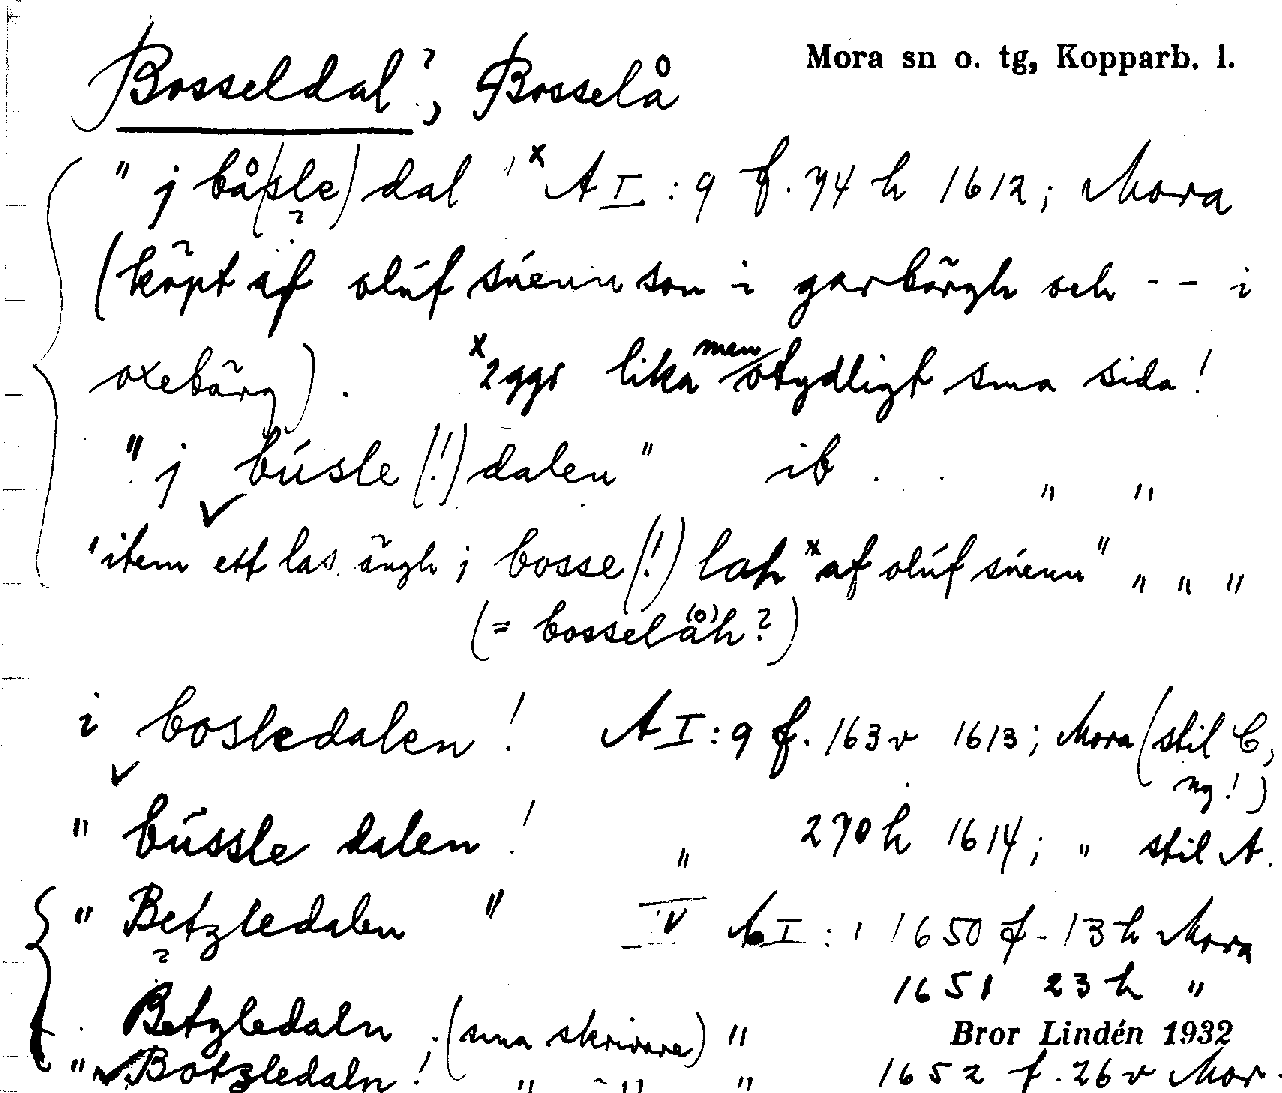 Mora sn o. tg, Kopparb. l.
Bosseldal?, Bosselå
" j bå(sle) dal " x A I : 9 f. 74 h 1612; Mora
?
(köpt af olúf súennson i garbärgh och - - i
oxebärg). x 2ggr lika men otydligt sma sida!
" j búsle (!) dalen " ib . . " "
" item ett las ängh j bosse (!) lah x af olúf súenn " " " "
(= bosselå(o)h?)
i bosledalen ! A I : 9 f. 163 v 1613; Mora (stil C,
ny!)
" bússle dalen ! " 270 h 1614; " stil A.
" Betzledalen " IV A I : 1 1650 f. 13 h Mora
? 1651 23 h "
Betzledaln ; (sma skrivare) "
Bror Lindén 1932
" Botzledaln ! " - " " 1652 f. 26 v Mor.